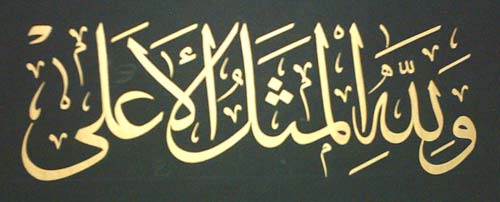 وَلِلَّهِ الْمَثَلُ الْأَعْلَى